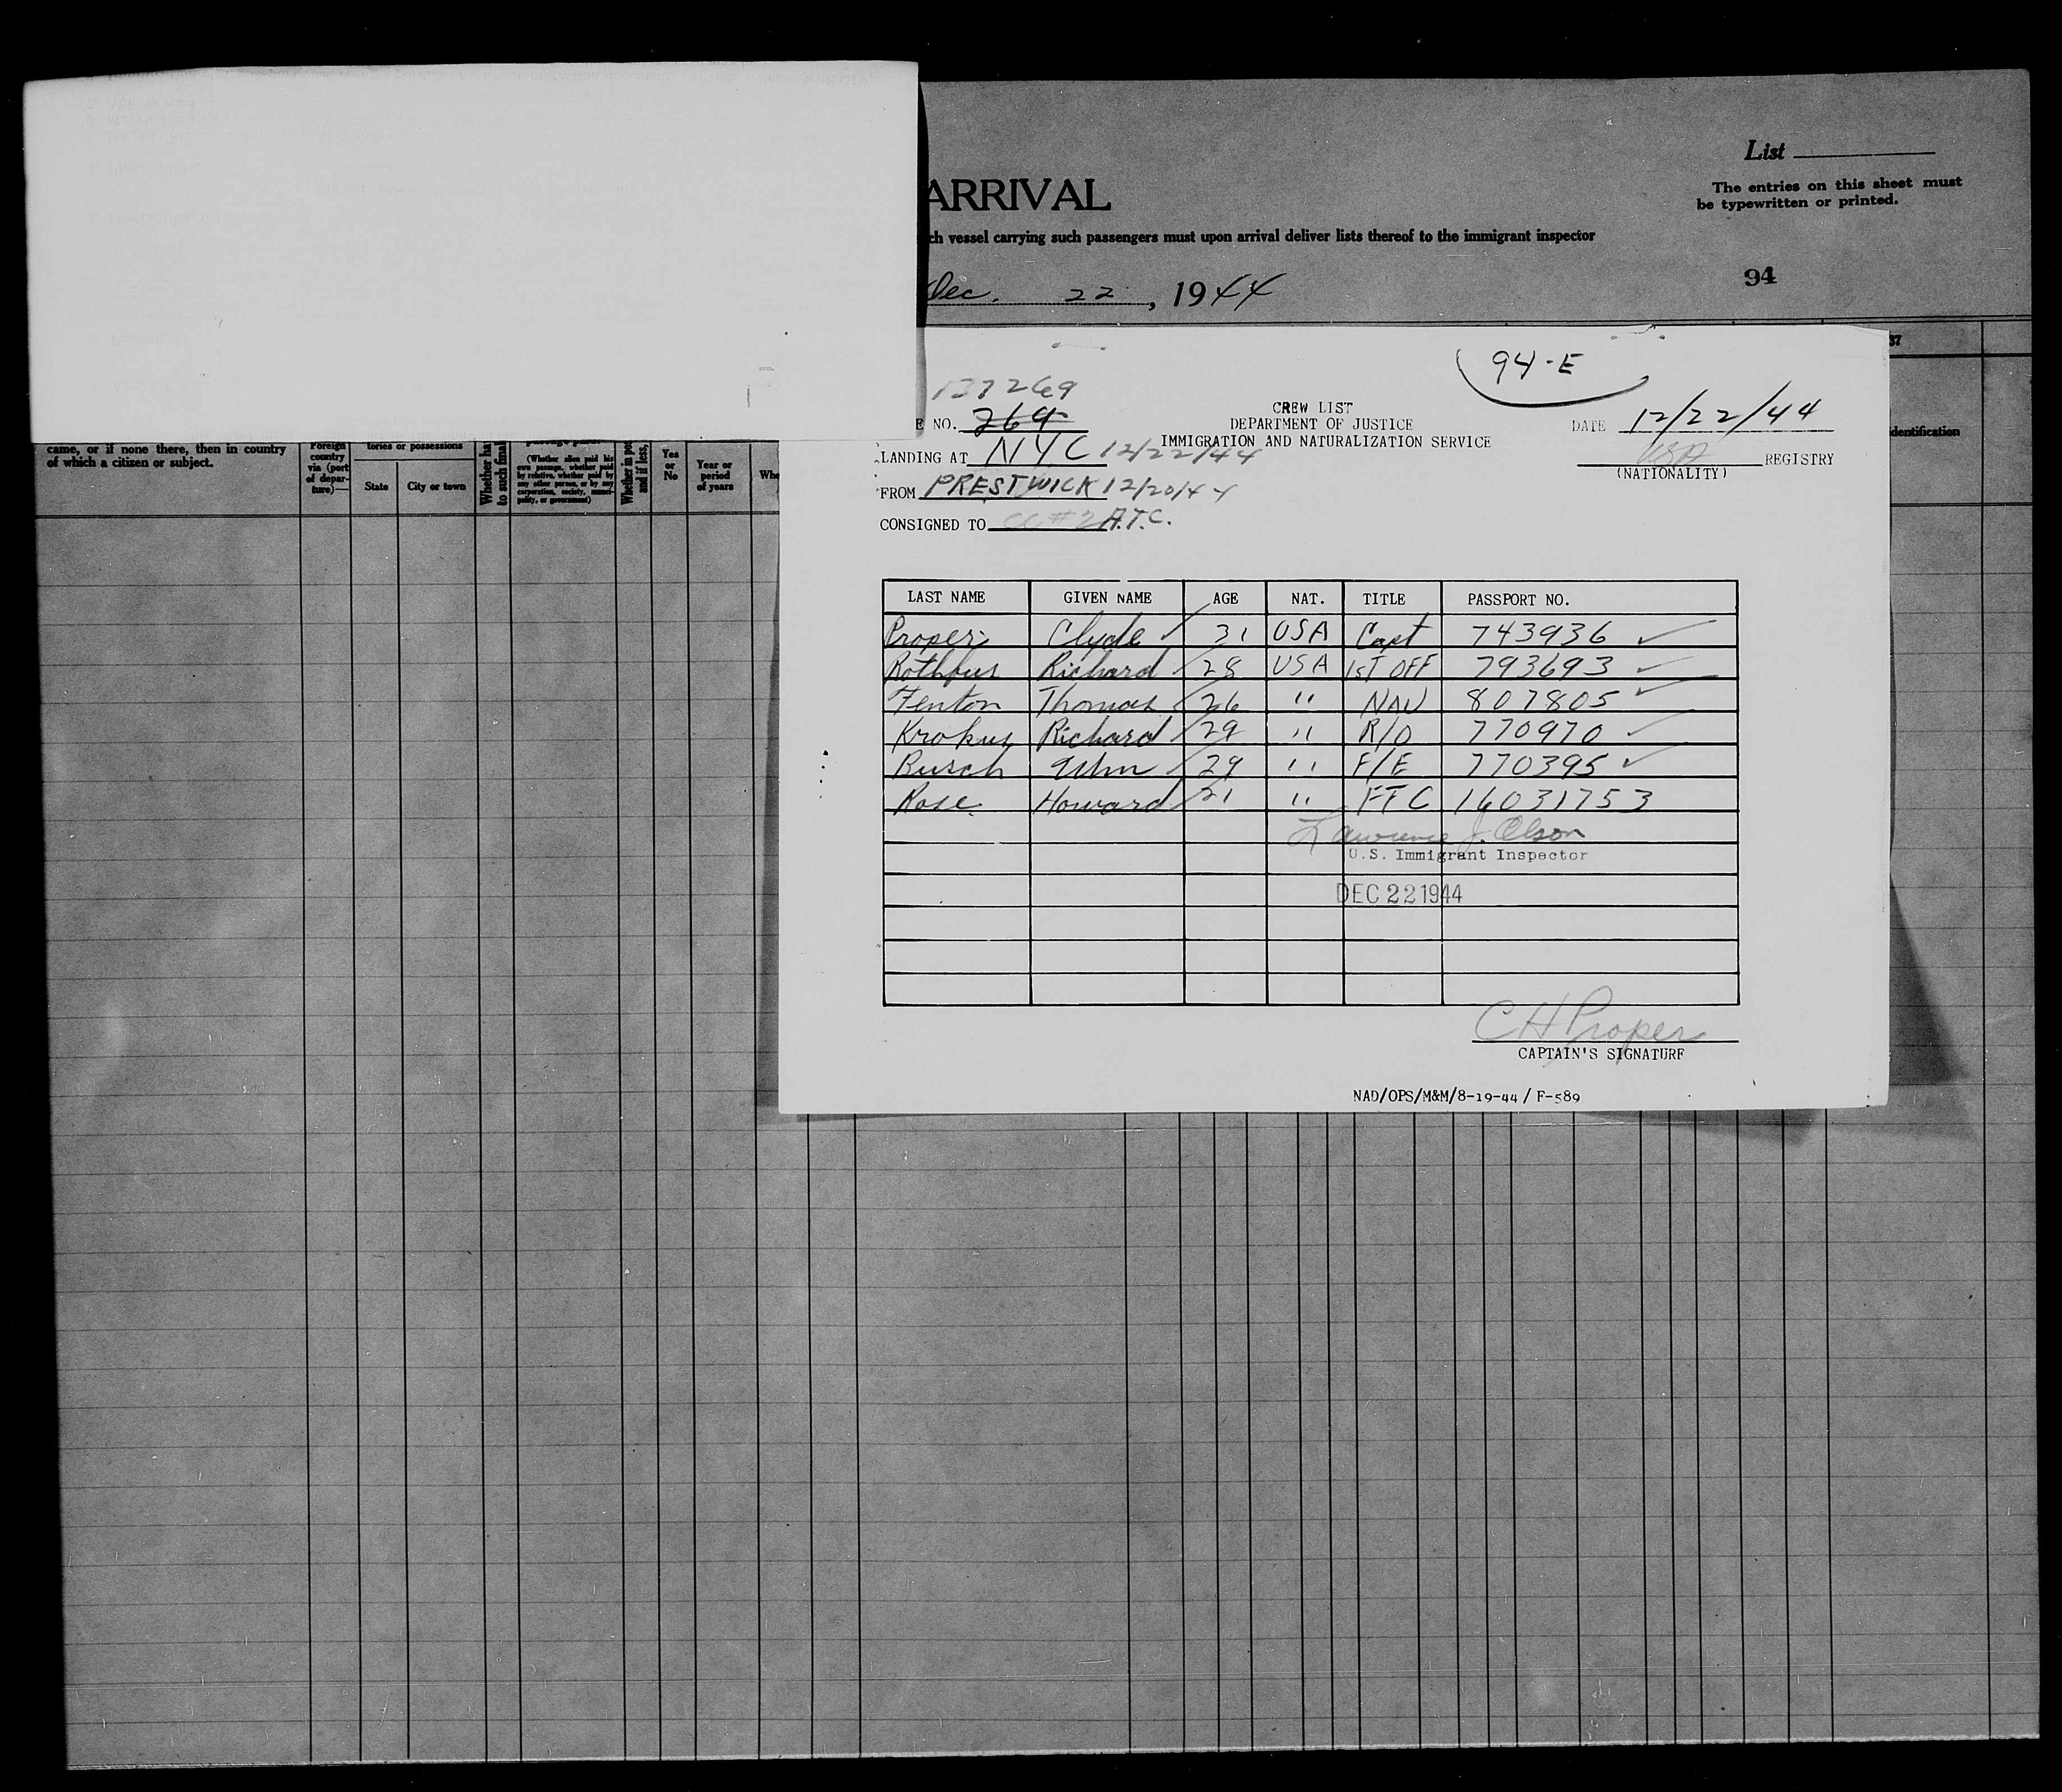 List
ARRIVAL
The entries on this sheet must
be typewritten or printed.
ch vessel carrying such passengers must upon arrival deliver lists thereof to the immigrant inspector
94
Dec. 22, 1944
37
94-E
137269
E NO. 269
CREW LIST
DEPARTMENT OF JUSTICE
IMMIGRATION AND NATURALIZATION SERVICE
DATE 12/22/44
USA REGISTRY
(NATIONALITY)
LANDING AT NYC 12/22/44
FROM PRESTWICK 12/20/44
CONSIGNED TO CC#2 A.T.C.
dentification
came, or if none there, then in country
of which a citizen or subject.
Foreign
country
via (port
of depar-
ture)—
tories or possessions
State City or town
Whether ha
to such final
(Whether alien paid his
own passage, whether paid
by relative, whether paid by
any other person, or by any
corporation, society, munici-
pality, or government)
Whether in po
and if less,
Yes
or
No
Year or
period
of years
Whe
LAST NAME GIVEN NAME AGE NAT. TITLE PASSPORT NO.
Proper Clyde 31 USA Capt 743936
Rothfus Richard 28 USA 1ST OFF 793693
Fenton Thomas 26 " NAV 807805
Krokus Richard 29 " R/O 770970
Busch Wm 29 " F/E 770395
Rose Howard 21 " FTC 16031753
Lawrence J. Olson
U.S. Immigrant Inspector
DEC 22 1944
C H Proper
CAPTAIN'S SIGNATURE
NAD/OPS/M&M/8-19-44/ F-589